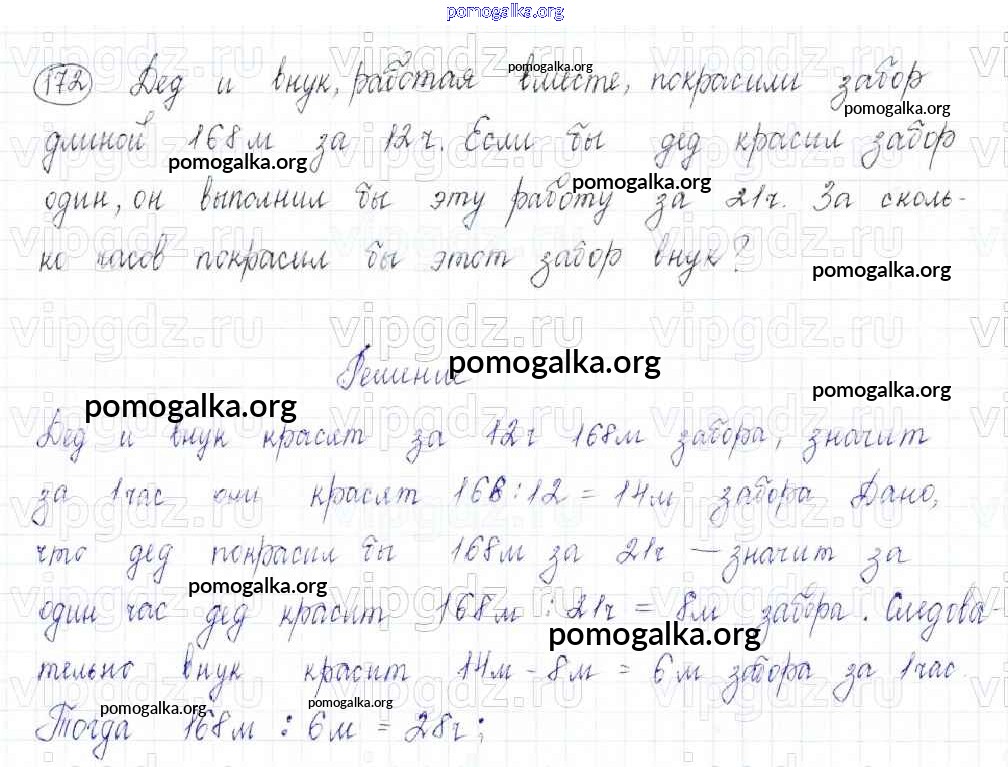 pomogalka.org
172 Дед и внук, работая вместе, покрасили забор
pomogalka.org
pomogalka.org
длиной 168м за 12ч. Если бы дед красил забор
pomogalka.org
pomogalka.org
один, он выполнил бы эту работу за 21ч. За сколь-
ко часов покрасил бы этот забор внук?
pomogalka.org
vipgdz.ru vipgdz.ru vipgdz.ru
Решение
pomogalka.org
pomogalka.org
pomogalka.org
Дед и внук красят за 12ч 168м забора, значит
за 1час они красят 168:12 = 14м забора Дано,
что дед покрасил бы 168м за 21ч — значит за
pomogalka.org
один час дед красит 168м : 21ч = 8м забора. Следова
pomogalka.org
тельно внук красит 14м - 8м = 6м забора за 1час.
pomogalka.org
pomogalka.org
Тогда 168м : 6м = 28ч;